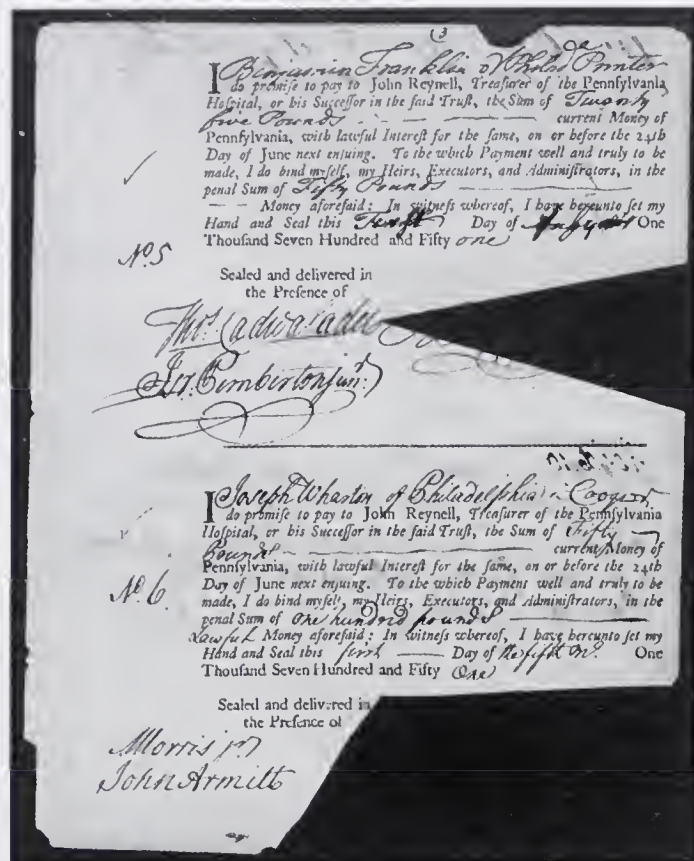 (3
I Benjamin Franklin of Philad. Printer
do promise to pay to John Reynell, Treaſurer of the Pennſylvania
Hoſpital, or his Succeſſor in the ſaid Truſt, the Sum of Twenty
five Pounds current Money of
Pennſylvania, with lawful Intereſt for the ſame, on or before the 24th
Day of June next enſuing. To the which Payment well and truly to be
made, I do bind myſelf, my Heirs, Executors, and Adminiſtrators, in the
penal Sum of Fifty Pounds
Money aforeſaid: In witneſs whereof, I have hereunto ſet my
Hand and Seal this Day of One
Thouſand Seven Hundred and Fifty one
No. 5
Sealed and delivered in
the Preſence of
Thos. Cadwalader
Is. Pemberton junr.
I Joseph Wharton of Philadelphia Cooper
do promiſe to pay to John Reynell, Treaſurer of the Pennſylvania
Hoſpital, or his Succeſſor in the ſaid Truſt, the Sum of Fifty
Pounds current Money of
Pennſylvania, with lawful Intereſt for the ſame, on or before the 24th
No. 6.
Day of June next enſuing. To the which Payment well and truly to be
made, I do bind myſelf, my Heirs, Executors, and Adminiſtrators, in the
penal Sum of one hundred pounds
Lawful Money aforeſaid: In witneſs whereof, I have hereunto ſet my
Hand and Seal this first Day of the fifth Mo. One
Thouſand Seven Hundred and Fifty One
Sealed and delivered in
the Preſence of
Morris jr
John Armitt